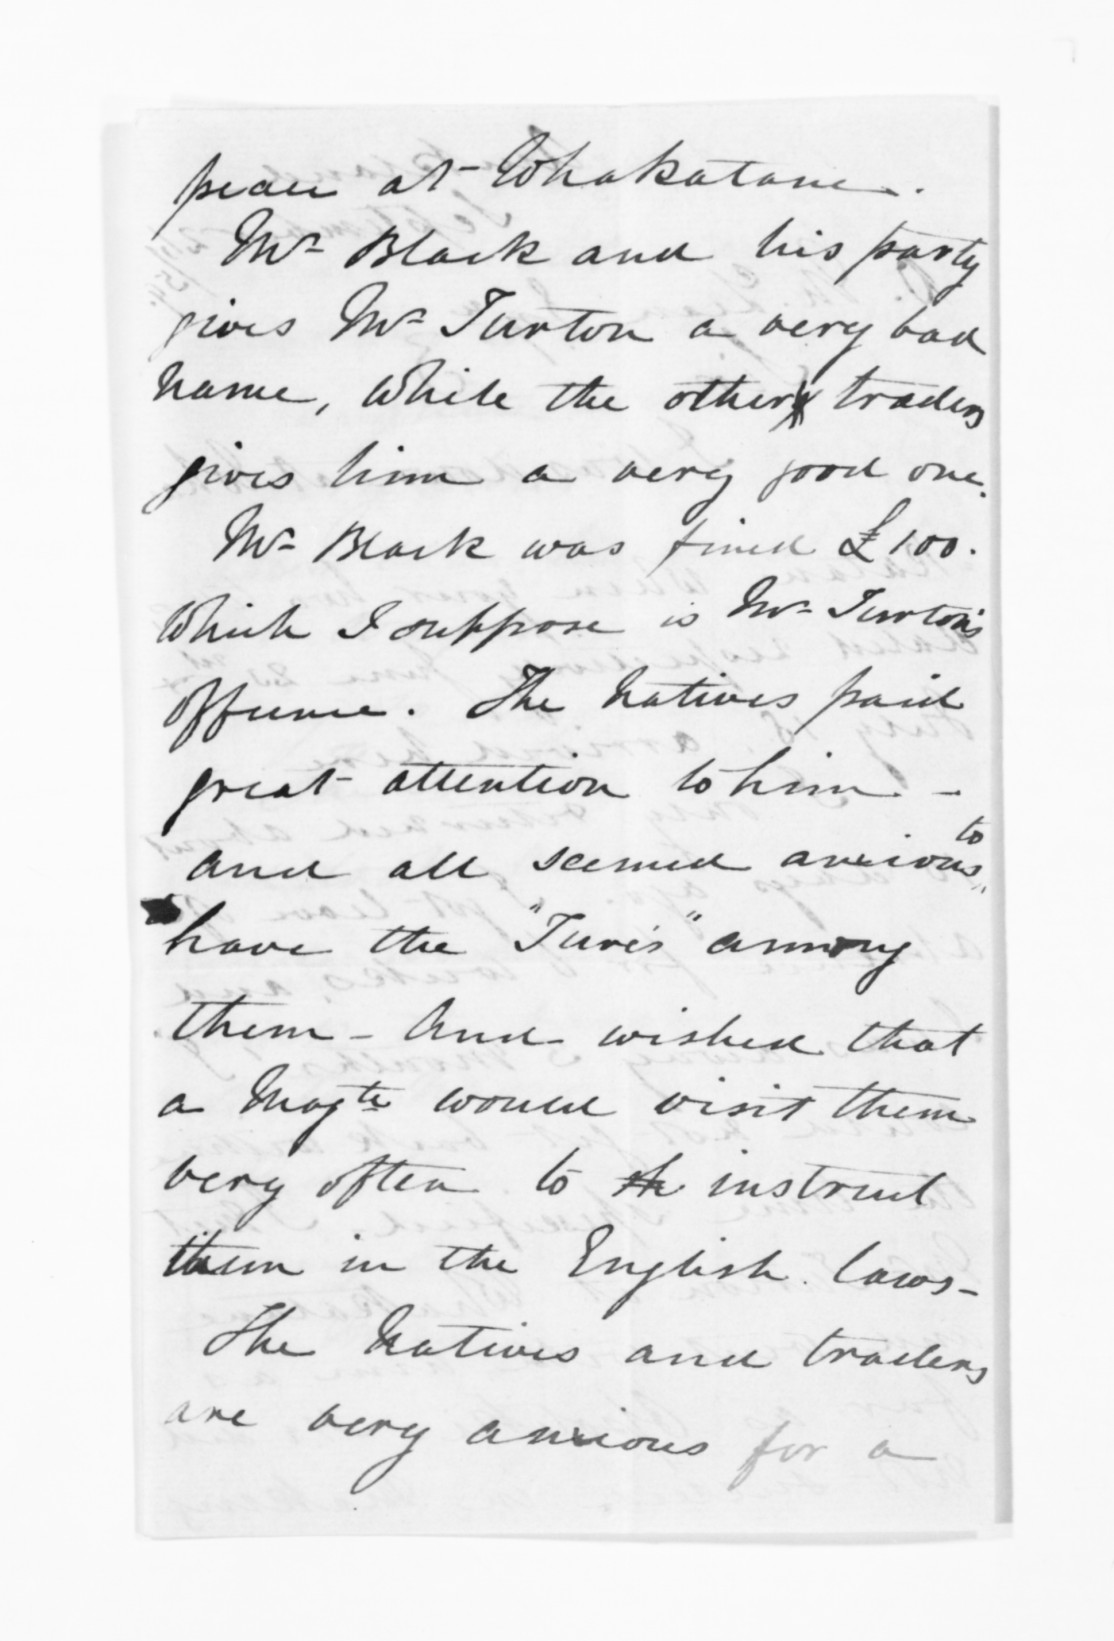 peace at Whakatane.
Mr Black and his party
gives Mr Turton a very bad
name, while the other traders
gives him a very good one.
Mr Black was fined £100.
Which I suppose is Mr Turton's
offence. The Natives paid
great attention to him -
and all seemed anxious to
have the "Ture's" among
them - And wished that
a Magte would visit them
very often to instruct
them in the English laws -
The Natives and traders
are very anxious for a